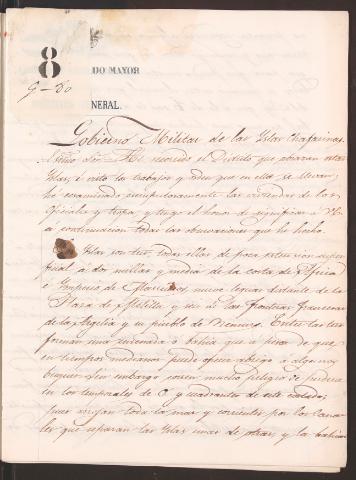 8
9-80
DO MAYOR
NERAL.
Gobierno Militar de las Yslas Chafarinas.
Ecsmo Sor. He recorrido el Distrito que abrazan estas
Yslas, è visto los trabajos y orden que en ellos se llevan,
hè ecsaminado las viviendas de los
Oficiales y tropa, y tengo el honor de significar à V.E.
a continuacion todas las observaciones que he hecho.
Yslas son tres, todas ellas de poca estencion super-
ficial, à dos millas y media de la costa de Africa
è Ymperio de Marruecos, nueve leguas distante de la
Plaza de Melilla y seis à las fronteras francesas
de la Argelia y su pueblo de Nemours. Entre las tres
forman una ensenada ò bahia que à pesar de que
en tiempos medianos puede ofrecer abrigo à algunos
buques, sin embargo corren mucho peligro de perderse
en los temporales de O. y cuadrantes de este
pues arrojan toda la mar y corrientes por los cana-
les que separan las Yslas unas de otras, y la bahia